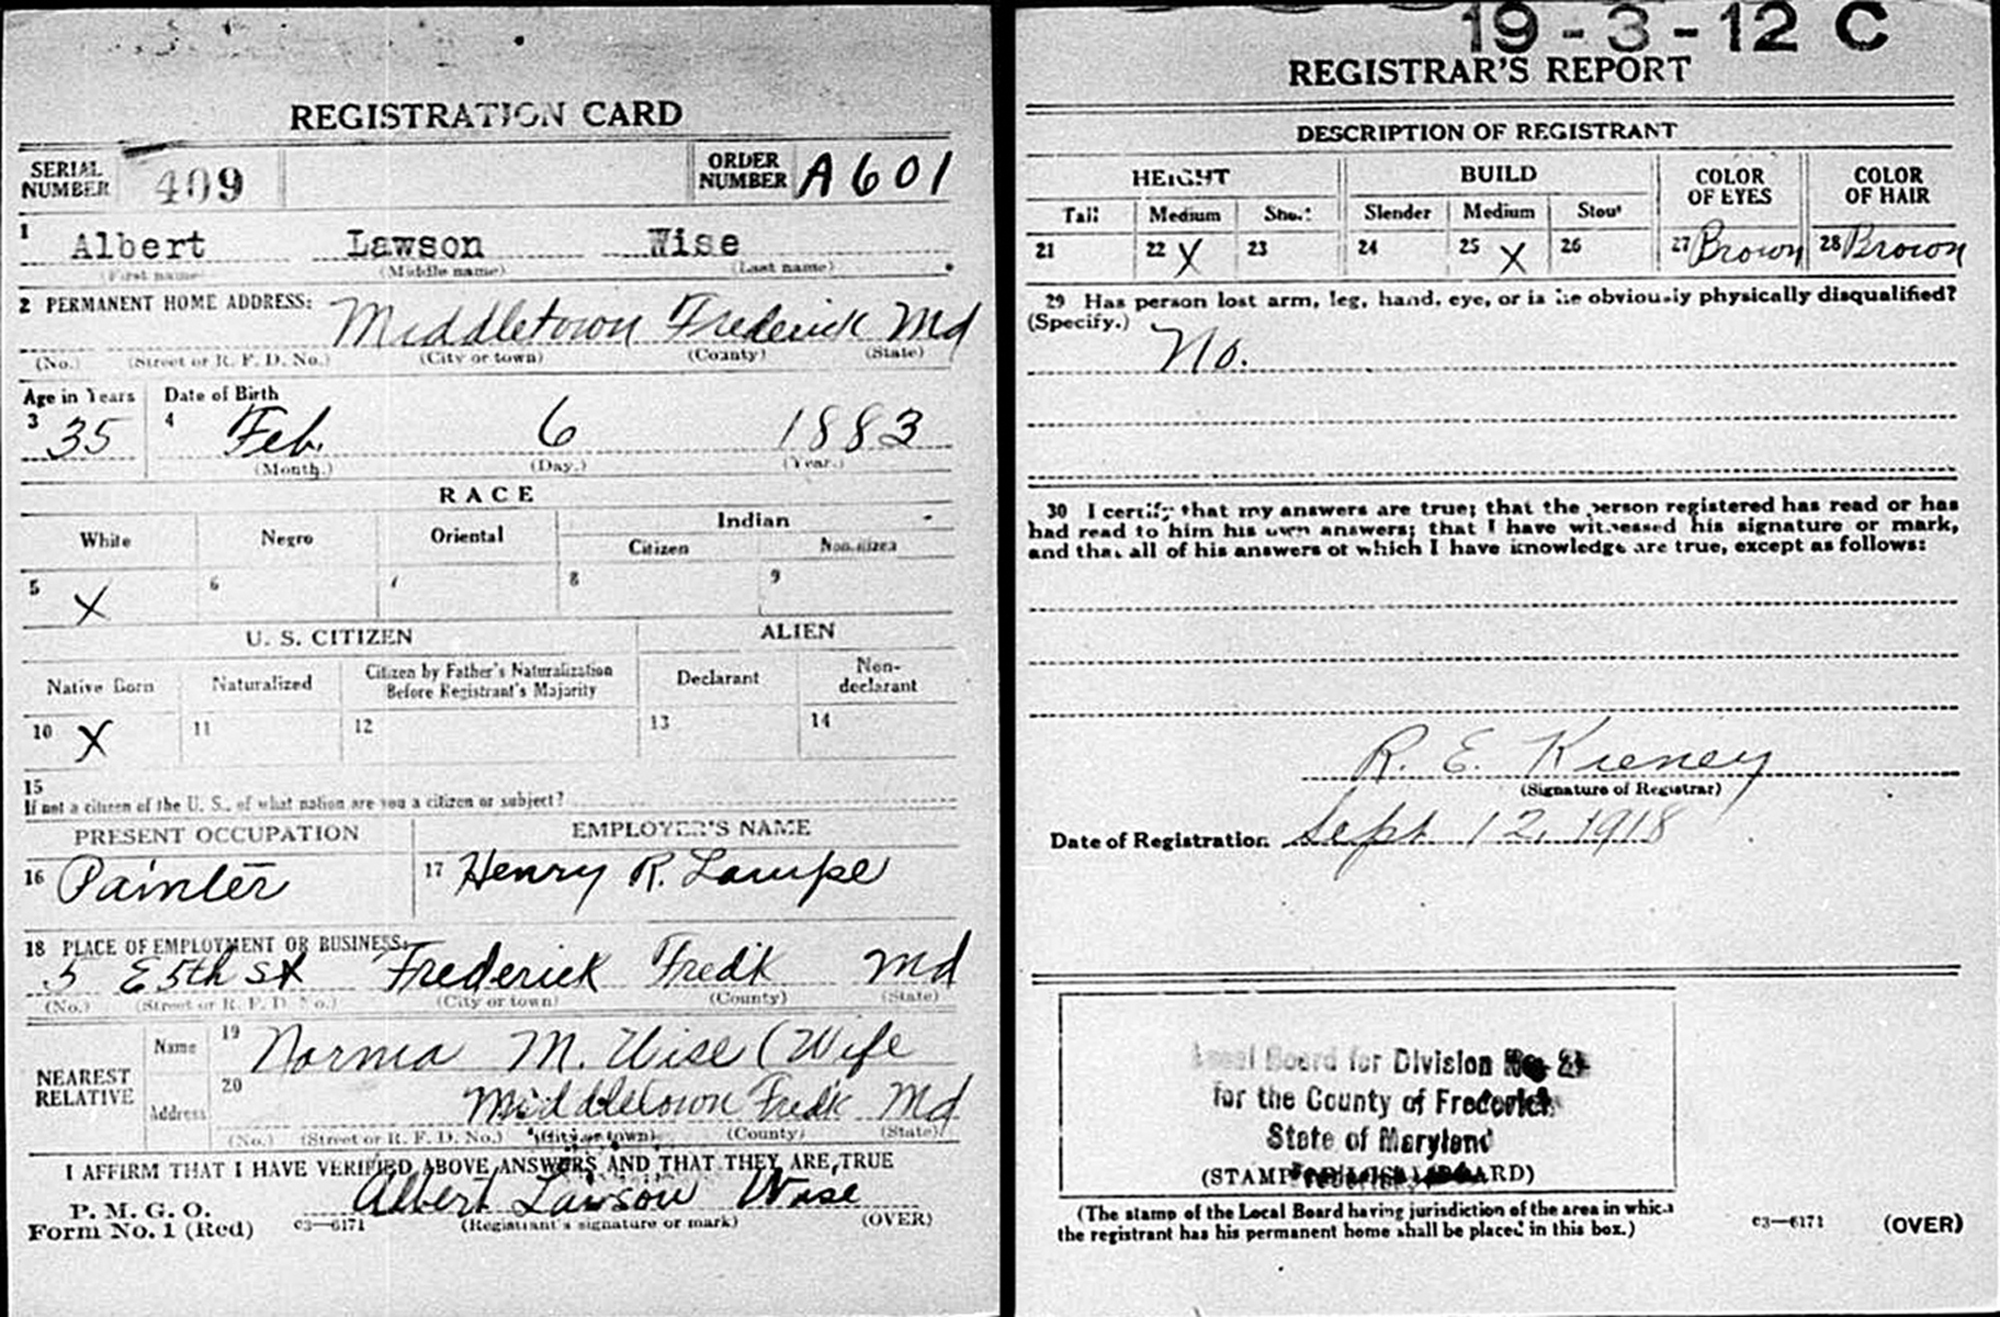 REGISTRATION CARD
SERIAL NUMBER 409 ORDER NUMBER A601
1 Albert Lawson Wise
(First name) (Middle name) (Last name)
2 PERMANENT HOME ADDRESS: Middletown Frederick Md
(No.) (Street or R. F. D. No.) (City or town) (County) (State)
Age in Years Date of Birth
3 35 4 Feb. 6 1883
(Month.) (Day.) (Year.)
RACE
White Negro Oriental Indian
Citizen Noncitizen
5 X 6 7 8 9
U. S. CITIZEN ALIEN
Native Born Naturalized Citizen by Father's Naturalization Before Registrant's Majority Declarant Non-declarant
10 X 11 12 13 14
15
If not a citizen of the U. S., of what nation are you a citizen or subject?
PRESENT OCCUPATION EMPLOYER'S NAME
16 Painter 17 Henry R. Lampe
18 PLACE OF EMPLOYMENT OR BUSINESS:
5 E 5th St Frederick Fredk Md
(No.) (Street or R. F. D. No.) (City or town) (County) (State)
NEAREST RELATIVE Name 19 Norma M. Wise (Wife
Address 20 Middletown Fredk Md
(No.) (Street or R. F. D. No.) (City or town) (County) (State)
I AFFIRM THAT I HAVE VERIFIED ABOVE ANSWERS AND THAT THEY ARE TRUE
P. M. G. O. Albert Lawson Wise
Form No. 1 (Red) c3—6171 (Registrant's signature or mark) (OVER)
19-3-12 C
REGISTRAR'S REPORT
DESCRIPTION OF REGISTRANT
HEIGHT BUILD COLOR OF EYES COLOR OF HAIR
Tall Medium Short Slender Medium Stout
21 22 X 23 24 25 X 26 27 Brown 28 Brown
29 Has person lost arm, leg, hand, eye, or is he obviously physically disqualified?
(Specify.) No.
30 I certify that my answers are true; that the person registered has read or has
had read to him his own answers; that I have witnessed his signature or mark,
and that all of his answers of which I have knowledge are true, except as follows:
R. E. Kieney
(Signature of Registrar)
Date of Registration Sept 12, 1918
Local Board for Division No.
for the County of Frederick
State of Maryland
(STAMP OF LOCAL BOARD)
(The stamp of the Local Board having jurisdiction of the area in which
the registrant has his permanent home shall be placed in this box.)
c3—6171 (OVER)